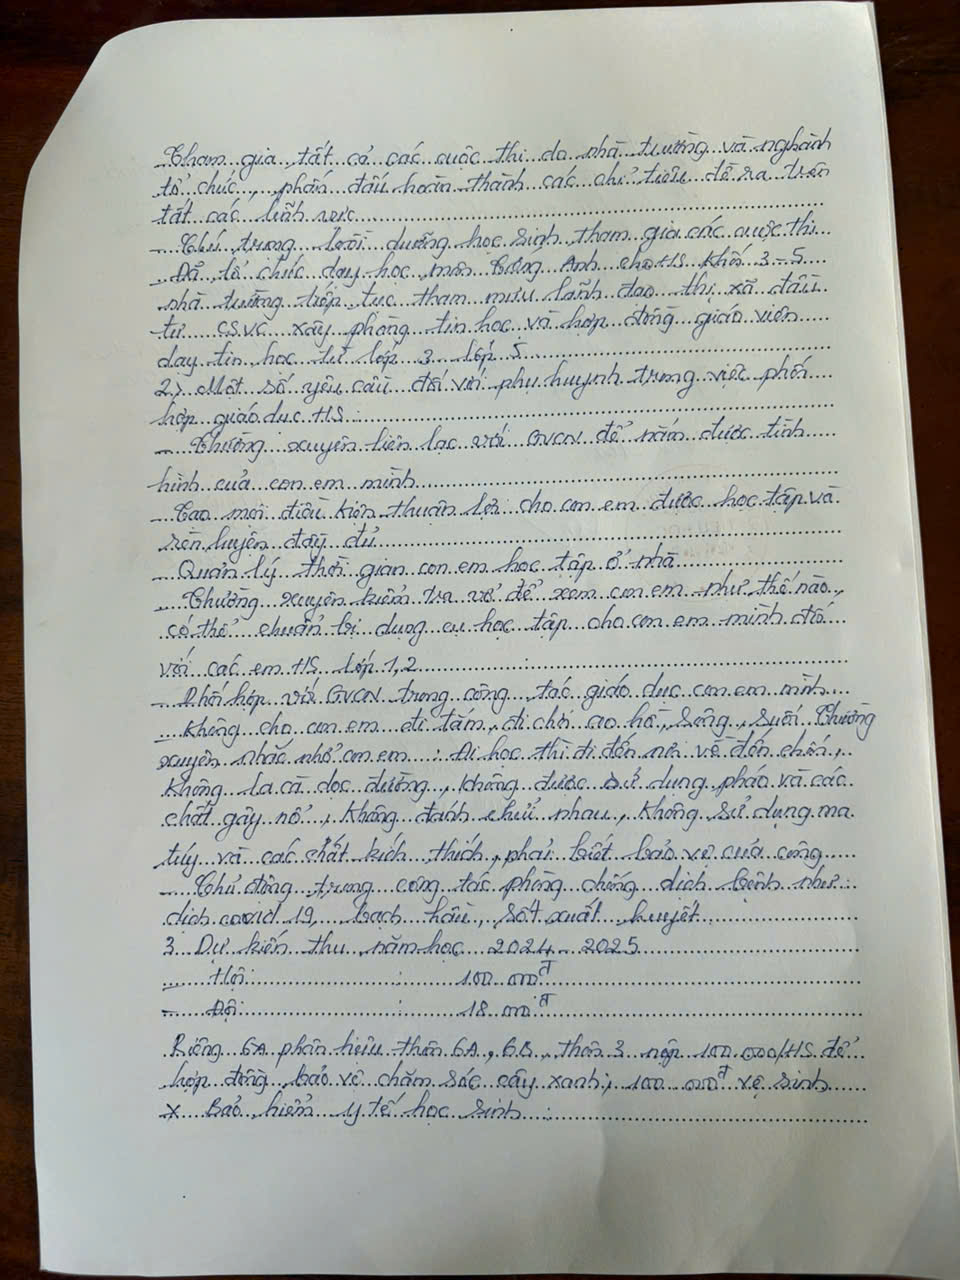 Tham gia tất cả các cuộc thi do nhà trường và nghành
tổ chức, phấn đấu hoàn thành các chỉ tiêu đề ra trên
tất các lĩnh vực
- Chú trọng bồi dưỡng học sinh tham gia các cuộc thi
- Để tổ chức dạy học môn Tiếng Anh cho HS khối 3-5
nhà trường tiếp tục tham mưu lãnh đạo thị xã đầu
tư CSVC xây phòng tin học và hợp đồng giáo viên
dạy tin học từ lớp 3 lớp 5
2) Một số yêu cầu đối với phụ huynh trong việc phối
hợp giáo dục HS:
- Thường xuyên liên lạc với GVCN để nắm được tình
hình của con em mình
- Tạo mọi điều kiện thuận lợi cho con em được học tập và
rèn luyện đầy đủ
- Quản lý thời gian con em học tập ở nhà
- Thường xuyên kiểm tra vở để xem con em như thế nào,
có thể chuẩn bị dụng cụ học tập cho con em mình đối
với các em HS lớp 1,2
- Phối hợp với GVCN trong công tác giáo dục con em mình
- Không cho con em đi tắm, đi chơi ao hồ, sông, suối Thường
xuyên nhắc nhở con em: Đi học thì đi đến nơi về đến chốn,
không la cà dọc đường, không được sử dụng pháo và các
chất gây nổ, không đánh chửi nhau, không sử dụng ma
túy và các chất kích thích, phải biết bảo vệ của công
- Chủ động trong công tác phòng chống dịch bệnh như:
dịch covid 19, bạch hầu, sốt xuất huyết
3. Dự kiến thu năm học 2024-2025
- Hội: : 100.000đ
- Đội: : 18.000đ
Riêng 6A phân hiệu thôn 6A, 6B, thôn 3 nộp 100.000/HS để
hợp đồng bảo vệ chăm sóc cây xanh; 100.000đ vệ sinh
* Bảo hiểm y tế học sinh :